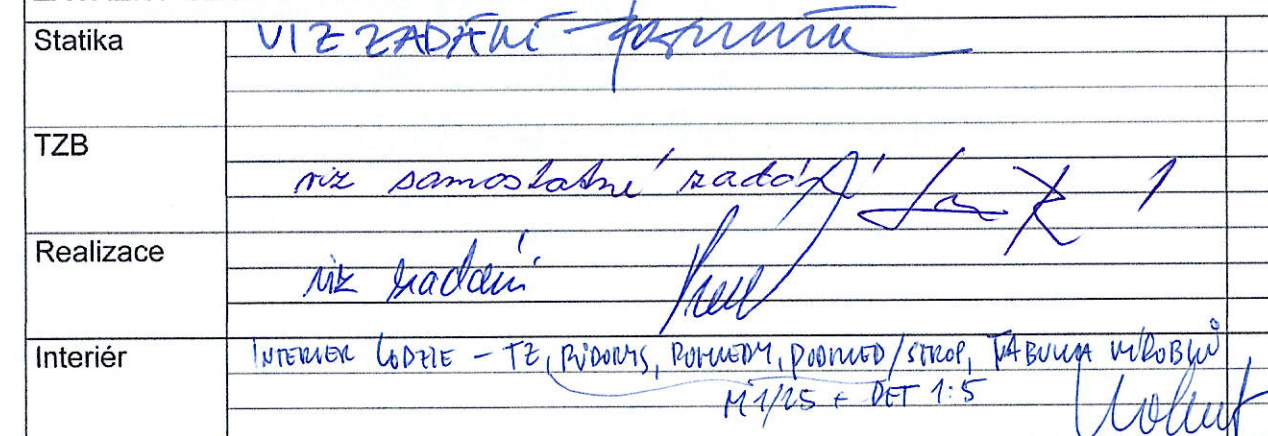 Statika VIZ ZADÁNÍ
TZB viz samostatné zadání
Realizace viz zadání
Interiér INTERIER LODZIE – TZ, PŮDORYS, POHLEDY, PODHLED/STROP, TABULKA VÝROBKŮ
M 1/25 + DET 1:5